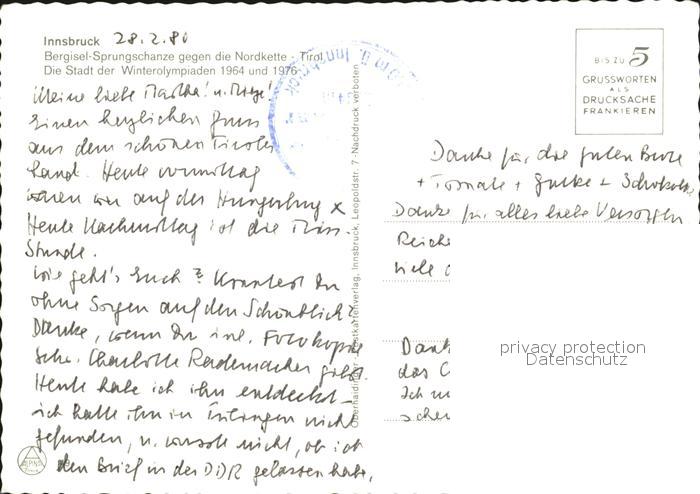 Innsbruck 28.2.80
Bergisel-Sprungschanze gegen die Nordkette - Tirol
Die Stadt der Winterolympiaden 1964 und 1976
Meine liebe Martha! u.
Einen herzlichen Gruss
aus dem schönen Tiroler
Land. Heute vormittag
waren wir auf der Hungerburg x
Heute Nachmittag ist die
Stunde.
Wie geht's Euch? Konntest Du
ohne Sorgen auf den
Danke, wenn Du inl. Fotokopie
Charlotte Rademacher
Heute habe ich ihn entdeckt -
ich hatte ihn in nicht
gefunden, u. wusste nicht, ob ich
den Brief in der DDR gelassen habe,
ALPINA
Innsbruck
Alpina Postkartenverlag, Innsbruck, Leopoldstr. 7 - Nachdruck verboten
BIS ZU 5
GRUSSWORTEN
ALS
DRUCKSACHE
FRANKIEREN
Danke für die guten Brote
+ Tomate + Gurke + Schokolade
Danke für alles liebe Versorgen
Reiche
viele
Dank
das C
Ich
privacy protection
Datenschutz